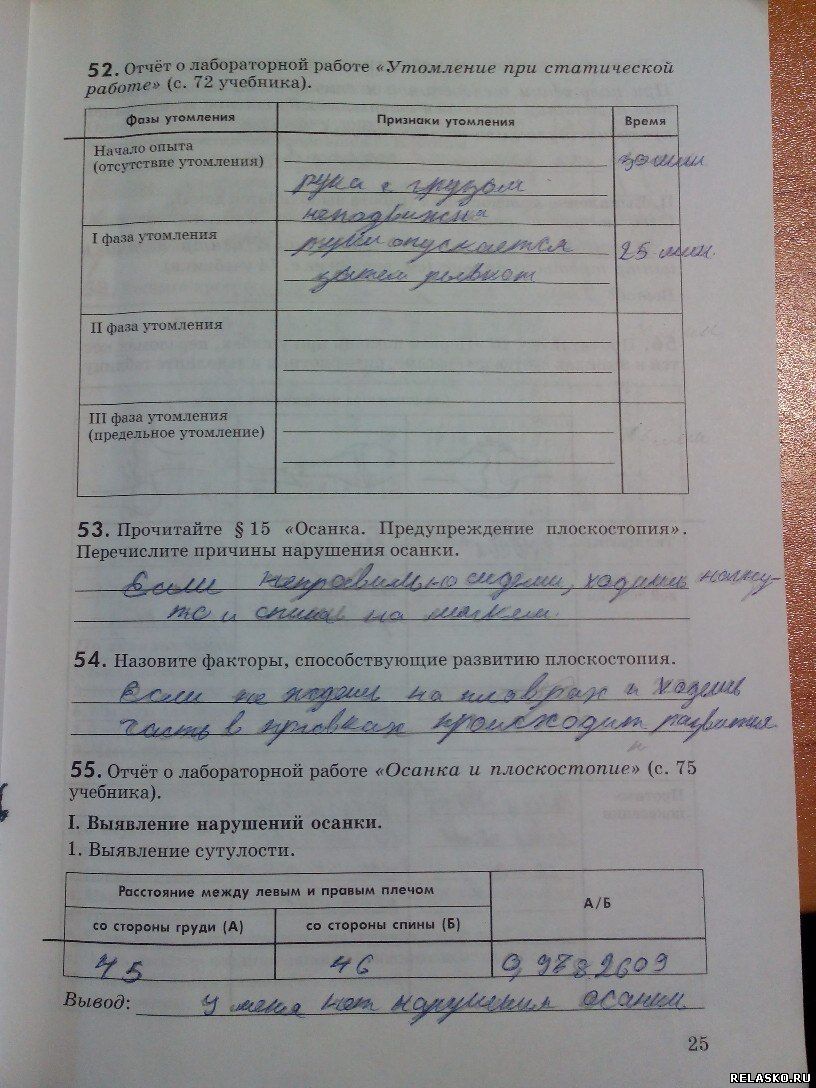 52. Отчёт о лабораторной работе «Утомление при статической
работе» (с. 72 учебника).
Фазы утомления Признаки утомления Время
Начало опыта
(отсутствие утомления)
рука с грузом
неподвижна
I фаза утомления
опускается
25 мин.
II фаза утомления
III фаза утомления
(предельное утомление)
53. Прочитайте § 15 «Осанка. Предупреждение плоскостопия».
Перечислите причины нарушения осанки.
Если неправильно сидеть, ходишь
и спишь на мягком.
54. Назовите факторы, способствующие развитию плоскостопия.
Если не ходишь на и ходишь
часть в происходит развития
55. Отчёт о лабораторной работе «Осанка и плоскостопие» (с. 75
учебника).
I. Выявление нарушений осанки.
1. Выявление сутулости.
Расстояние между левым и правым плечом А/Б
со стороны груди (А) со стороны спины (Б)
45 46 0,9782609
Вывод: У меня нет нарушения осанки
25
RELASKO.RU